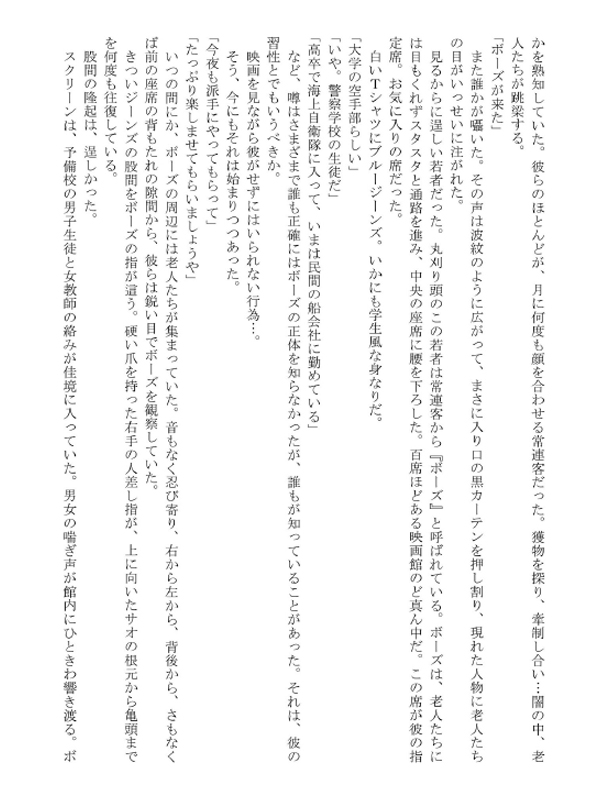 かを熟知していた。彼らのほとんどが、月に何度も顔を合わせる常連客だった。獲物を探り、牽制し合い…闇の中、老
人たちが跳梁する。
「ボーズが来た」
また誰かが囁いた。その声は波紋のように広がって、まさに入り口の黒カーテンを押し割り、現れた人物に老人たち
の目がいっせいに注がれた。
見るからに逞しい若者だった。丸刈り頭のこの若者は常連客から『ボーズ』と呼ばれている。ボーズは、老人たちに
は目もくれずスタスタと通路を進み、中央の座席に腰を下ろした。百席ほどある映画館のど真ん中だ。この席が彼の指
定席。お気に入りの席だった。
白いTシャツにブルージーンズ。いかにも学生風な身なりだ。
「大学の空手部らしい」
「いや。警察学校の生徒だ」
「高卒で海上自衛隊に入って、いまは民間の船会社に勤めている」
など、噂はさまざまで誰も正確にはボーズの正体を知らなかったが、誰もが知っていることがあった。それは、彼の
習性とでもいうべきか。
映画を見ながら彼がせずにはいられない行為…。
そう、今にもそれは始まりつつあった。
「今夜も派手にやってもらって」
「たっぷり楽しませてもらいましょうや」
いつの間にか、ボーズの周辺には老人たちが集まっていた。音もなく忍び寄り、右から左から、背後から、さもなく
ば前の座席の背もたれの隙間から、彼らは鋭い目でボーズを観察していた。
きついジーンズの股間をボーズの指が這う。硬い爪を持った右手の人差し指が、上に向いたサオの根元から亀頭まで
を何度も往復している。
股間の隆起は、逞しかった。
スクリーンは、予備校の男子生徒と女教師の絡みが佳境に入っていた。男女の喘ぎ声が館内にひときわ響き渡る。ボ